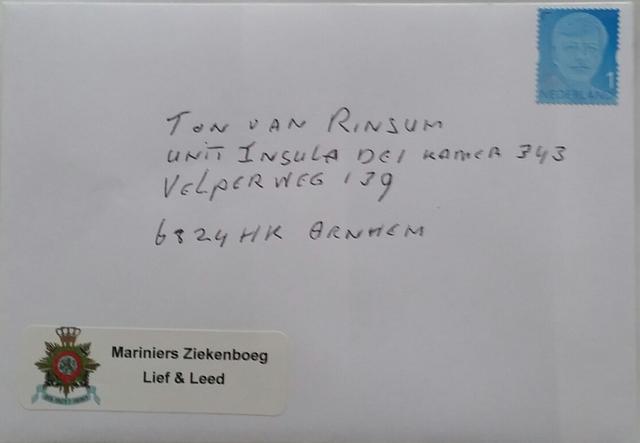 1
NEDERLAND
TON VAN RINSUM
UNIT INSULA DEI KAMER 343
VELPERWEG 139
6824HK ARNHEM
Mariniers Ziekenboeg
Lief & Leed